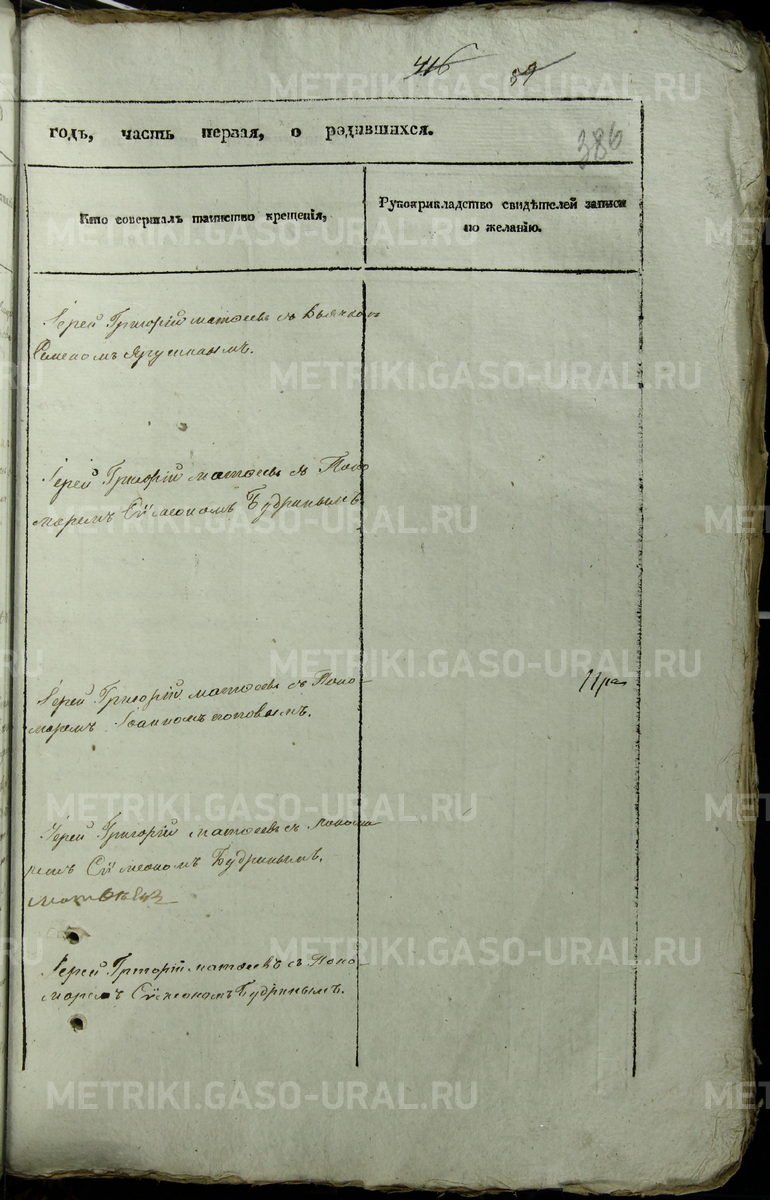 416 59
386
годъ, часть первая, о родившихся.
Кто совершалъ таинство крещенія,
Рукоприкладство свидѣтелей записи
по желанію.
Іерей Григорій матѳеевъ съ Дьячком
Симеономъ Ярушинымъ.
Іерей Григорій матѳеевъ съ Поно
маремъ Сѵмеономъ Будринымъ
Іерей Григорій матѳеевъ съ Поно-
маремъ Іоанномъ поповымъ.
Іерей Григорій матѳеевъ съ понома
ремъ Сѵмеономъ Будринымъ.
Іерей Григорій матѳеевъ съ Поно-
маремъ Сѵмеономъ Будринымъ.
METRIKI.GASO-URAL.RU